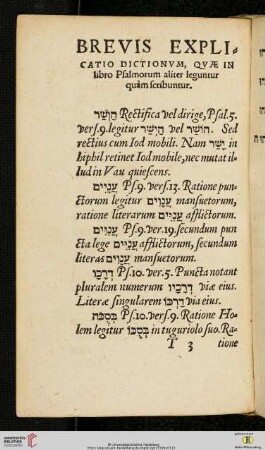 BREVIS EXPLI-
CATIO DICTIONVM, QVÆ IN
libro Psalmorum aliter leguntur
quàm scribuntur.
הַוְשַׁר Rectifica vel dirige, Psal. 5.
vers. 9. legitur הַיְשַׁר vel הוֹשַׁר. Sed
rectius cum Iod mobili. Nam יָשַׁר in
hiphil retinet Iod mobile, nec mutat il-
lud in Vau quiescens.
עֲנָוִים Ps. 9. vers. 13. Ratione pun-
ctorum legitur עֲנָוִים mansuetorum,
ratione literarum עֲנִיִּים afflictorum.
עֲנָוִים Ps. 9. ver. 19. secundum pun
cta lege עֲנִיִּים afflictorum, secundum
literas עֲנָוִים mansuetorum.
דְרָכָו Ps. 10. ver. 5. Puncta notant
pluralem numerum דְרָכָיו viæ eius.
Literæ singularem דַרְכּוֹ via eius.
בְּסֻכֹּה Ps. 10. vers. 9. Ratione Ho-
lem legitur בְּסֻכּוֹ in tuguriolo suo. Ra-
T 3 tione
UNIVERSITÄTS-
BIBLIOTHEK
HEIDELBERG
© Universitätsbibliothek Heidelberg